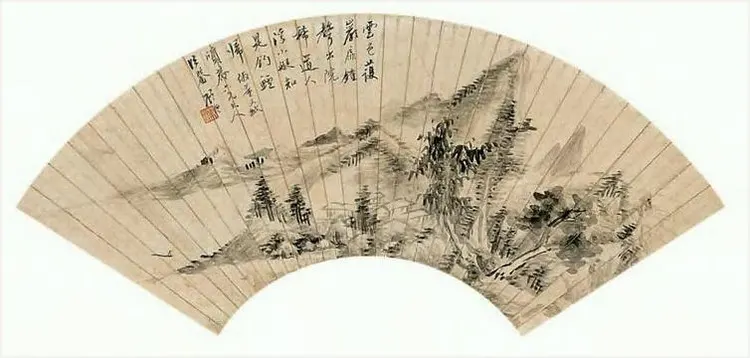 雲色護
巖扉鐘
聲出院
稀道人
浮小艇知
是釣鱸
歸